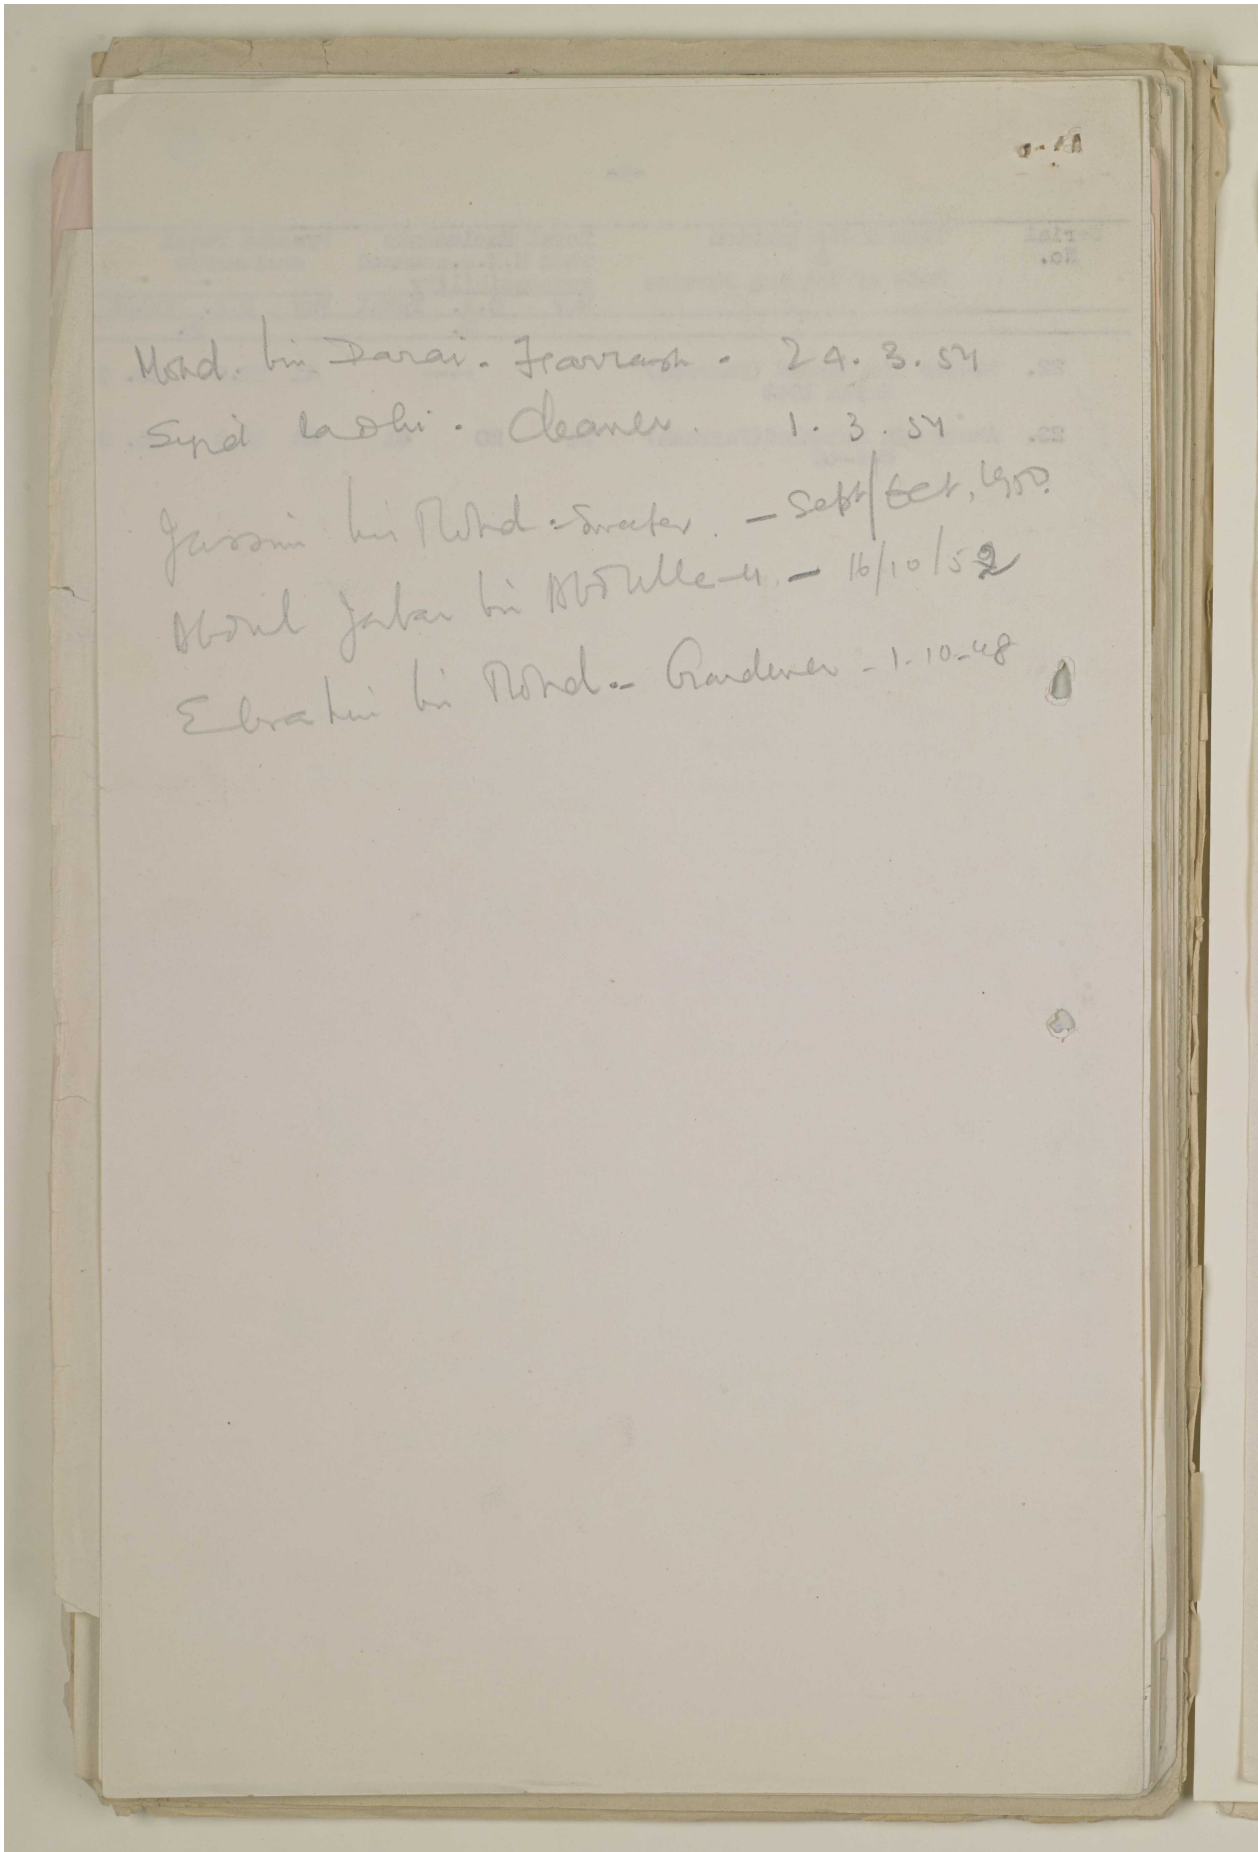 Mohd. bin Darai. Farrash. 24. 3. 54
Syed Radhi. Cleaner. 1. 3. 54
Jassim bin Mohd - Sweeper. - Sept/Oct, 1950.
Abdul Jabar bin Abdulla - - 16/10/52
Ebrahim bin Mohd. - Gardener - 1-10-48